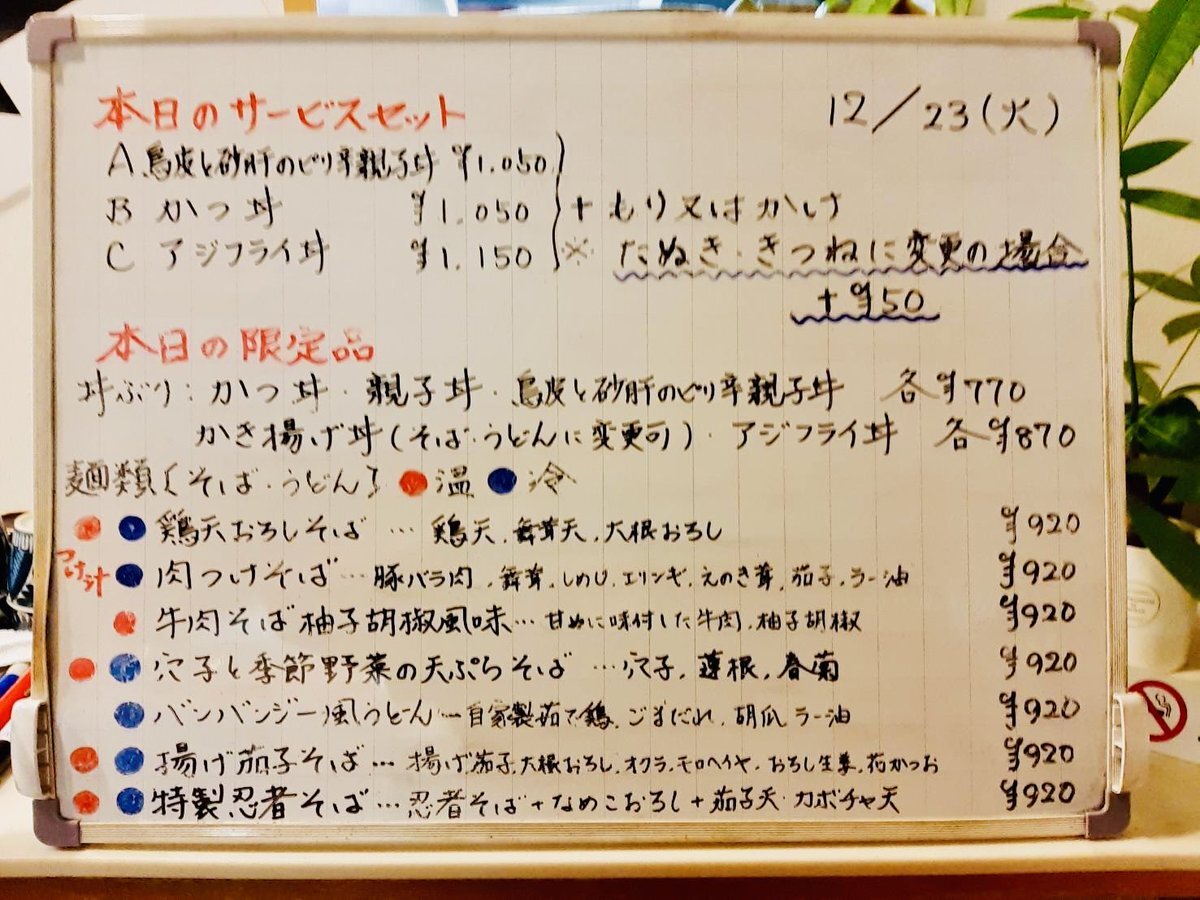 本日のサービスセット 12/23(火)
A 鳥皮と砂肝のピリ辛親子丼 ¥1.050
B かつ丼 ¥1.050 + もり又はかけ
C アジフライ丼 ¥1.150 ※ たぬき・きつねに変更の場合
+¥50
本日の限定品
丼ぶり:かつ丼・親子丼・鳥皮と砂肝のピリ辛親子丼 各¥770
かき揚げ丼(そば・うどんに変更可)・アジフライ丼 各¥870
麺類〔そば・うどん〕 温 冷
鶏天おろしそば … 鶏天、舞茸天、大根おろし ¥920
つけ汁 肉つけそば … 豚バラ肉、舞茸、しめじ、エリンギ、えのき茸、茄子、ラー油 ¥920
牛肉そば柚子胡椒風味 … 甘めに味付した牛肉、柚子胡椒 ¥920
穴子と季節野菜の天ぷらそば … 穴子、蓮根、春菊 ¥920
バンバンジー風うどん … 自家製茹で鶏、ごまだれ、胡瓜、ラー油 ¥920
揚げ茄子そば … 揚げ茄子、大根おろし、オクラ、モロヘイヤ、おろし生姜、花かつお ¥920
特製忍者そば … 忍者そば+なめこおろし+茄子天・カボチャ天 ¥920